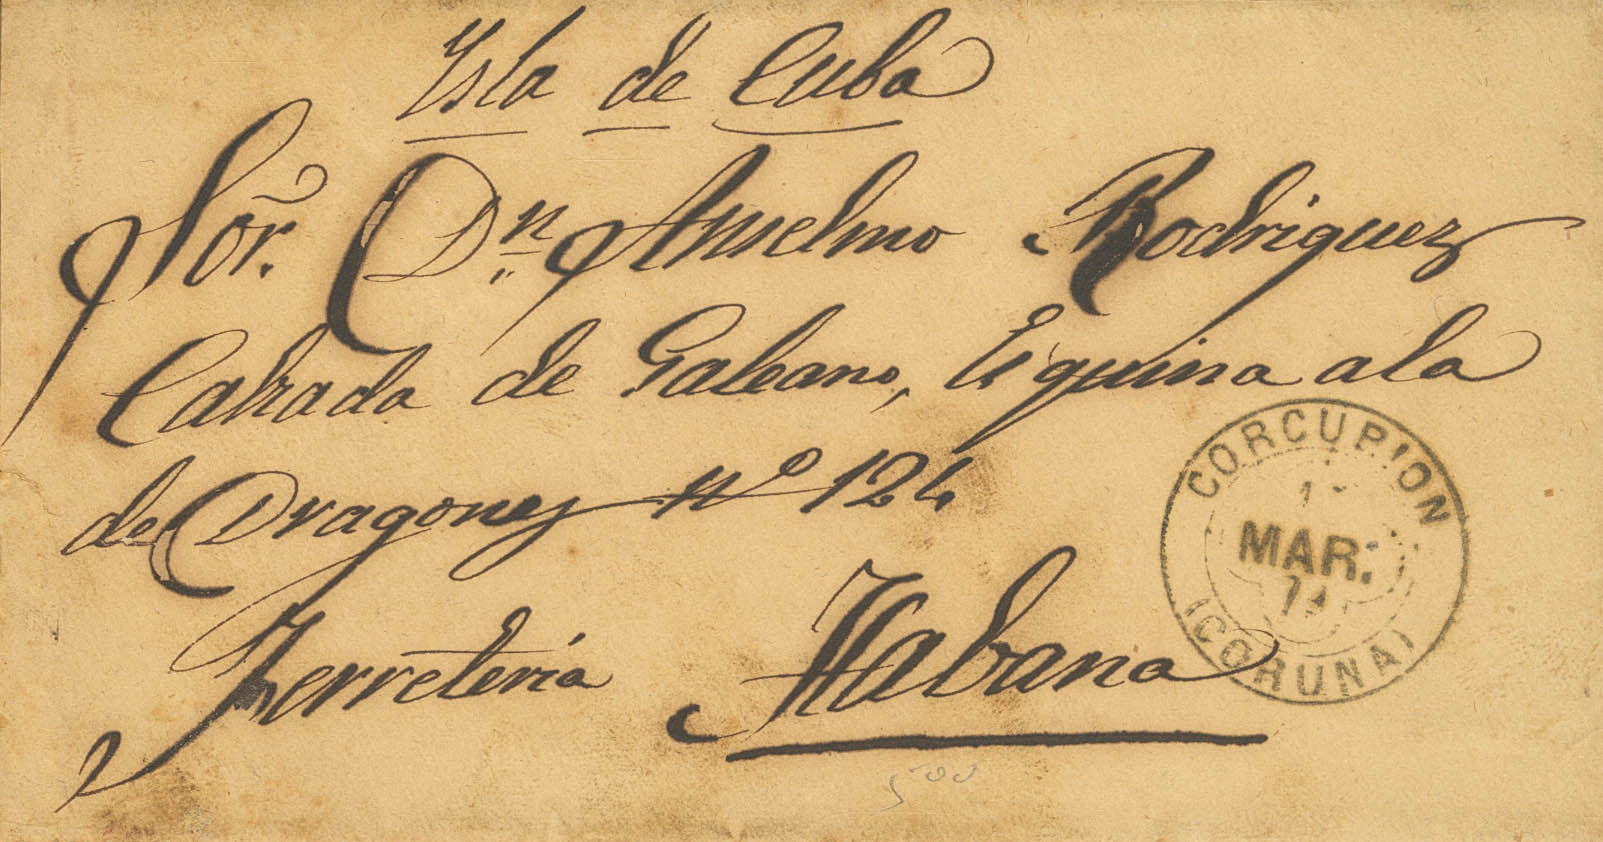 Ysla de Cuba
Sor. Dn. Anselmo Rodriguez
Calzada de Galeano, Esquina a la
de Dragones Nº 124
Ferretería Habana
CORCUBION
MAR:
(CORUÑA)
500